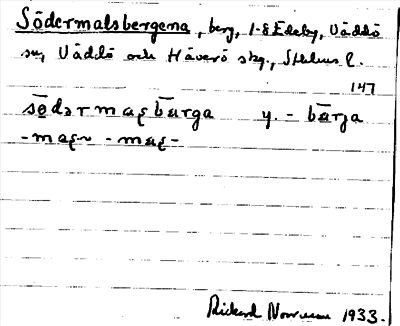 Södermalsbergena, berg, 1-8 Edeby, Väddö
sn, Väddö och Häverö skg., Sthlms l.
147
södərmaɛbärga y. - bärja
-maɛ~ -maɛ-
Rickard Norrman 1933.